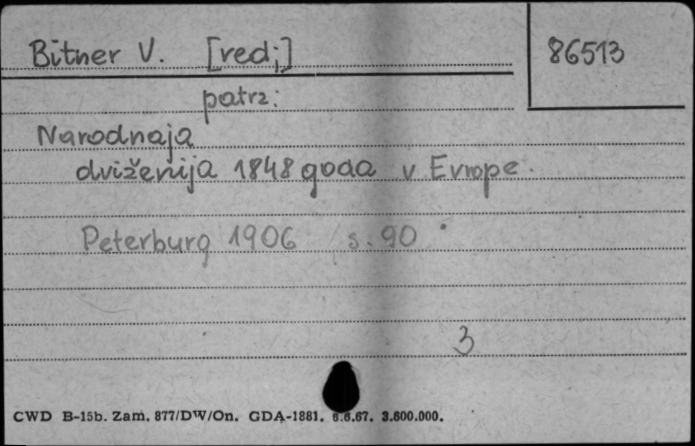 Bitner V. [red;] 86513
patrz:
Narodnaja
dviženija 1848 goda v Evrope.
Peterburg 1906 s. 90
3
CWD B-15b. Zam. 877/DW/On. GDA-1881. 6.6.67. 3.600.000.